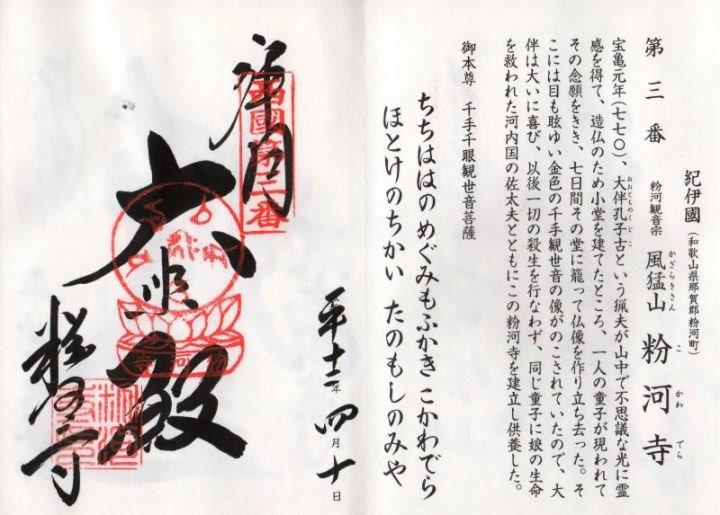 第三番
紀伊國(和歌山県那賀郡粉河町)
粉河観音宗 風猛山 粉河寺
かざらきさん こ かわ でら
宝亀元年(七七〇)、大伴孔子古という猟夫が山中で不思議な光に霊
おおとものくじこ
感を得て、造仏のため小堂を建てたところ、一人の童子が現われて
その念願をきき、七日間その堂に籠って仏像を作り立ち去った。そ
こには目も眩ゆい金色の千手観世音の像がのこされていたので、大
伴は大いに喜び、以後一切の殺生を行なわず、同じ童子に娘の生命
を救われた河内国の佐太夫とともにこの粉河寺を建立し供養した。
御本尊 千手千眼観世音菩薩
ちちははの めぐみもふかき こかわでら
ほとけのちかい たのもしのみや
平十二年四月十日
奉
西國第三番
大悲殿
粉河寺